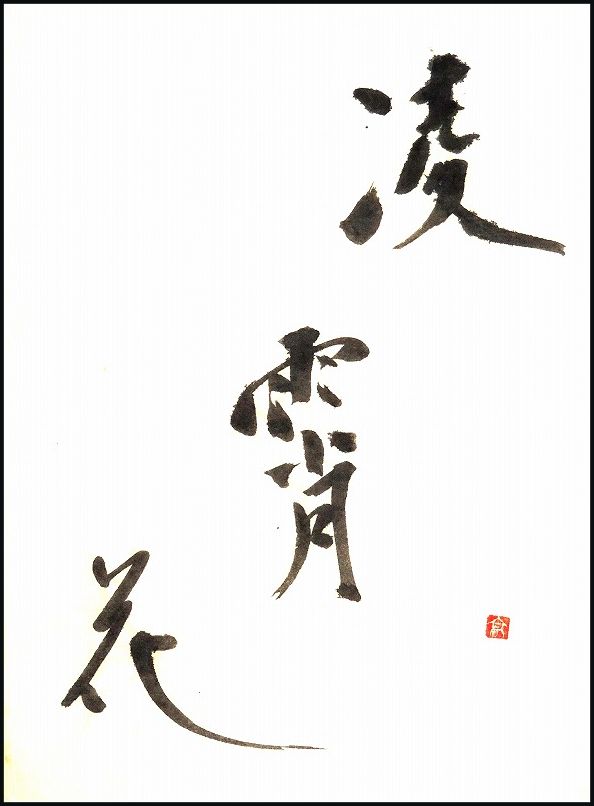 凌
霄
花